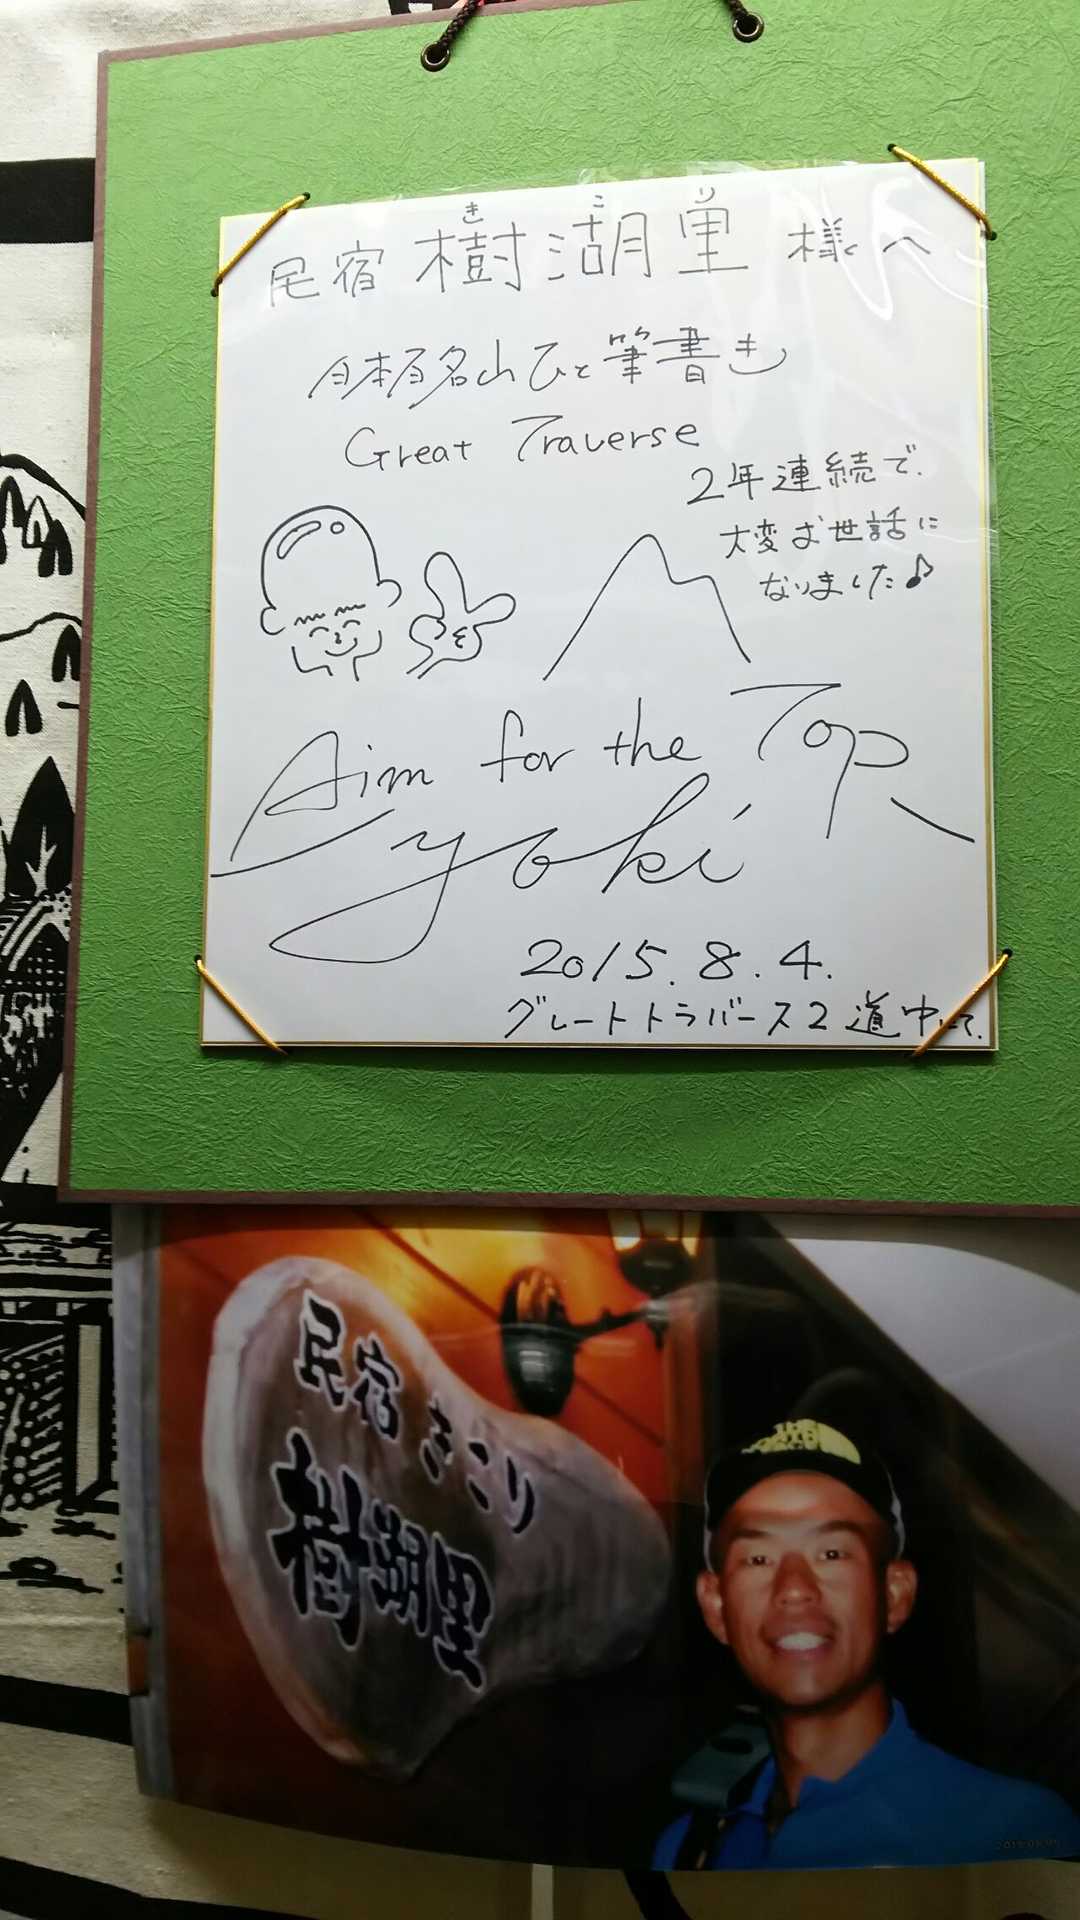 きこり
民宿 樹湖里 様へ
日本百名山ひと筆書き
Great Traverse
2年連続で、
大変お世話に
なりました♪
Aim for the Top
yoki
2015.8.4.
グレートトラバース2 道中にて。
民宿 きこり
樹湖里